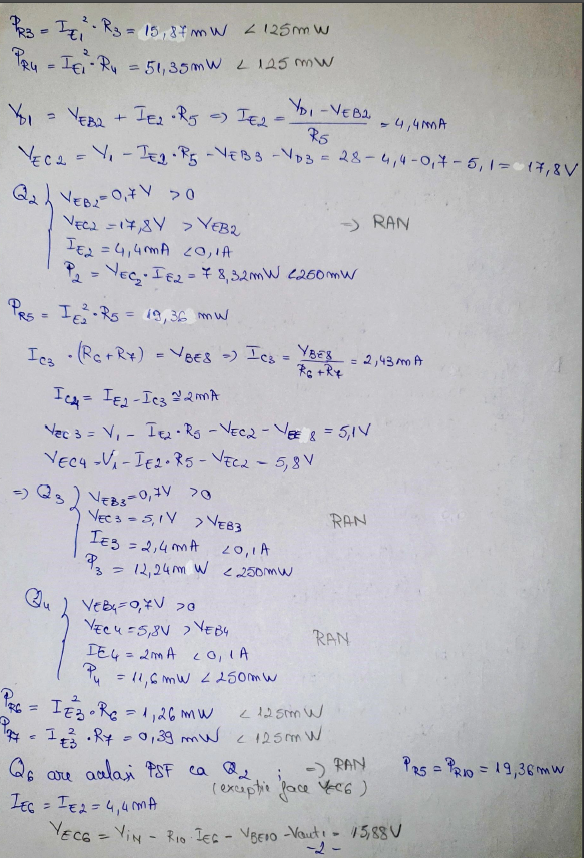 P_R3 = I_E1² · R3 = 15,87mW < 125mW
P_R4 = I_E1² · R4 = 51,35mW < 125mW
V_D1 = V_EB2 + I_E2 · R5 => I_E2 = (V_D1 - V_EB2) / R5 = 4,4mA
V_EC2 = V1 - I_E2 · R5 - V_EB3 - V_D3 = 28 - 4,4 - 0,7 - 5,1 = 17,8V
Q2 { V_EB2 = 0,7V > 0
V_EC2 = 17,8V > V_EB2 => RAN
I_E2 = 4,4mA < 0,1A
P2 = V_EC2 · I_E2 = 78,32mW < 250mW
P_R5 = I_E2² · R5 = 19,36 mW
I_C3 · (R6 + R7) = V_BE8 => I_C3 = V_BE8 / (R6 + R7) = 2,43mA
I_C4 = I_E2 - I_C3 ≅ 2mA
V_EC3 = V1 - I_E2 · R5 - V_EC2 - V_BE8 = 5,1V
V_EC4 = V1 - I_E2 · R5 - V_EC2 = 5,8V
=> Q3 { V_EB3 = 0,7V > 0
V_EC3 = 5,1V > V_EB3 RAN
I_E3 = 2,4mA < 0,1A
P3 = 12,24mW < 250mW
Q4 { V_EB4 = 0,7V > 0
V_EC4 = 5,8V > V_EB4 RAN
I_E4 = 2mA < 0,1A
P4 = 11,6mW < 250mW
P_R6 = I_E3² · R6 = 1,26mW < 125mW
P_R7 = I_E3² · R7 = 0,39mW < 125mW
Q6 are acelasi PSF ca Q2 ; => RAN P_R5 = P_R10 = 19,36mW
(exceptie face V_EC6)
I_E6 = I_E2 = 4,4mA
V_EC6 = V_IN - R10 · I_E6 - V_BE10 - Vout1 = 15,88V
-2-